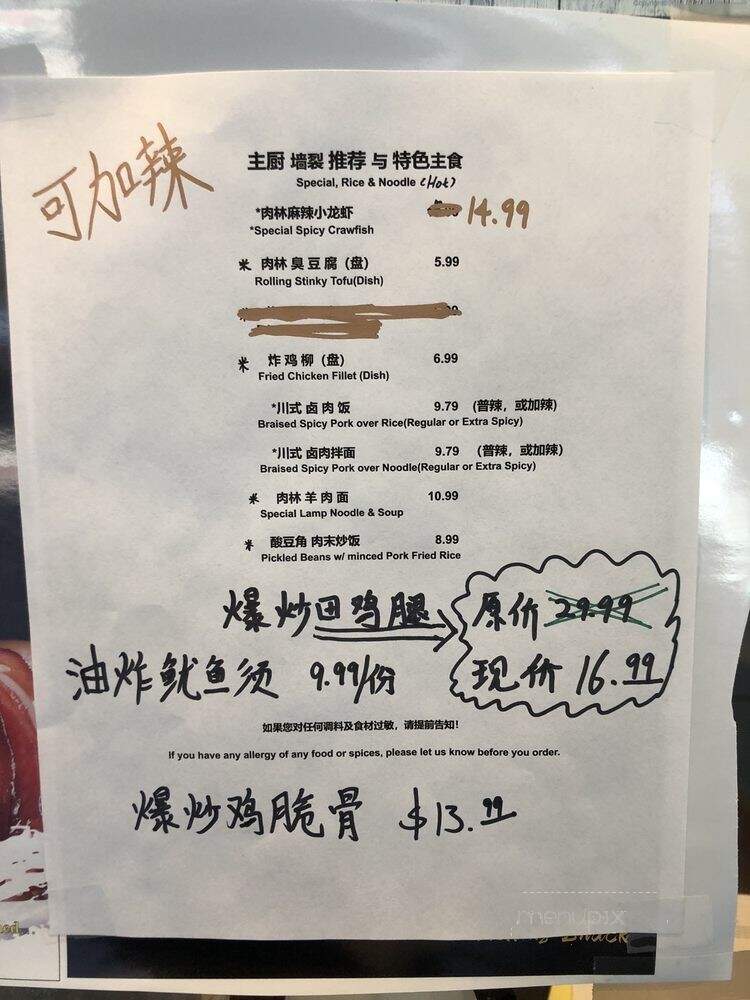 可加辣
主厨 墙裂 推荐 与 特色主食
Special, Rice & Noodle (Hot)
*肉林麻辣小龙虾 14.99
*Special Spicy Crawfish
米 肉林 臭 豆 腐 (盘) 5.99
Rolling Stinky Tofu(Dish)
米 炸 鸡 柳 (盘) 6.99
Fried Chicken Fillet (Dish)
*川式 卤 肉 饭 9.79 (普辣，或加辣)
Braised Spicy Pork over Rice(Regular or Extra Spicy)
*川式 卤肉拌面 9.79 (普辣，或加辣)
Braised Spicy Pork over Noodle(Regular or Extra Spicy)
米 肉林 羊 肉 面 10.99
Special Lamp Noodle & Soup
米 酸豆角 肉末炒饭 8.99
Pickled Beans w/ minced Pork Fried Rice
爆炒田鸡腿 原价 29.99
油炸鱿鱼须 9.99/份 现价 16.99
如果您对任何调料及食材过敏，请提前告知!
If you have any allergy of any food or spices, please let us know before you order.
爆炒鸡脆骨 $13.99
menupix